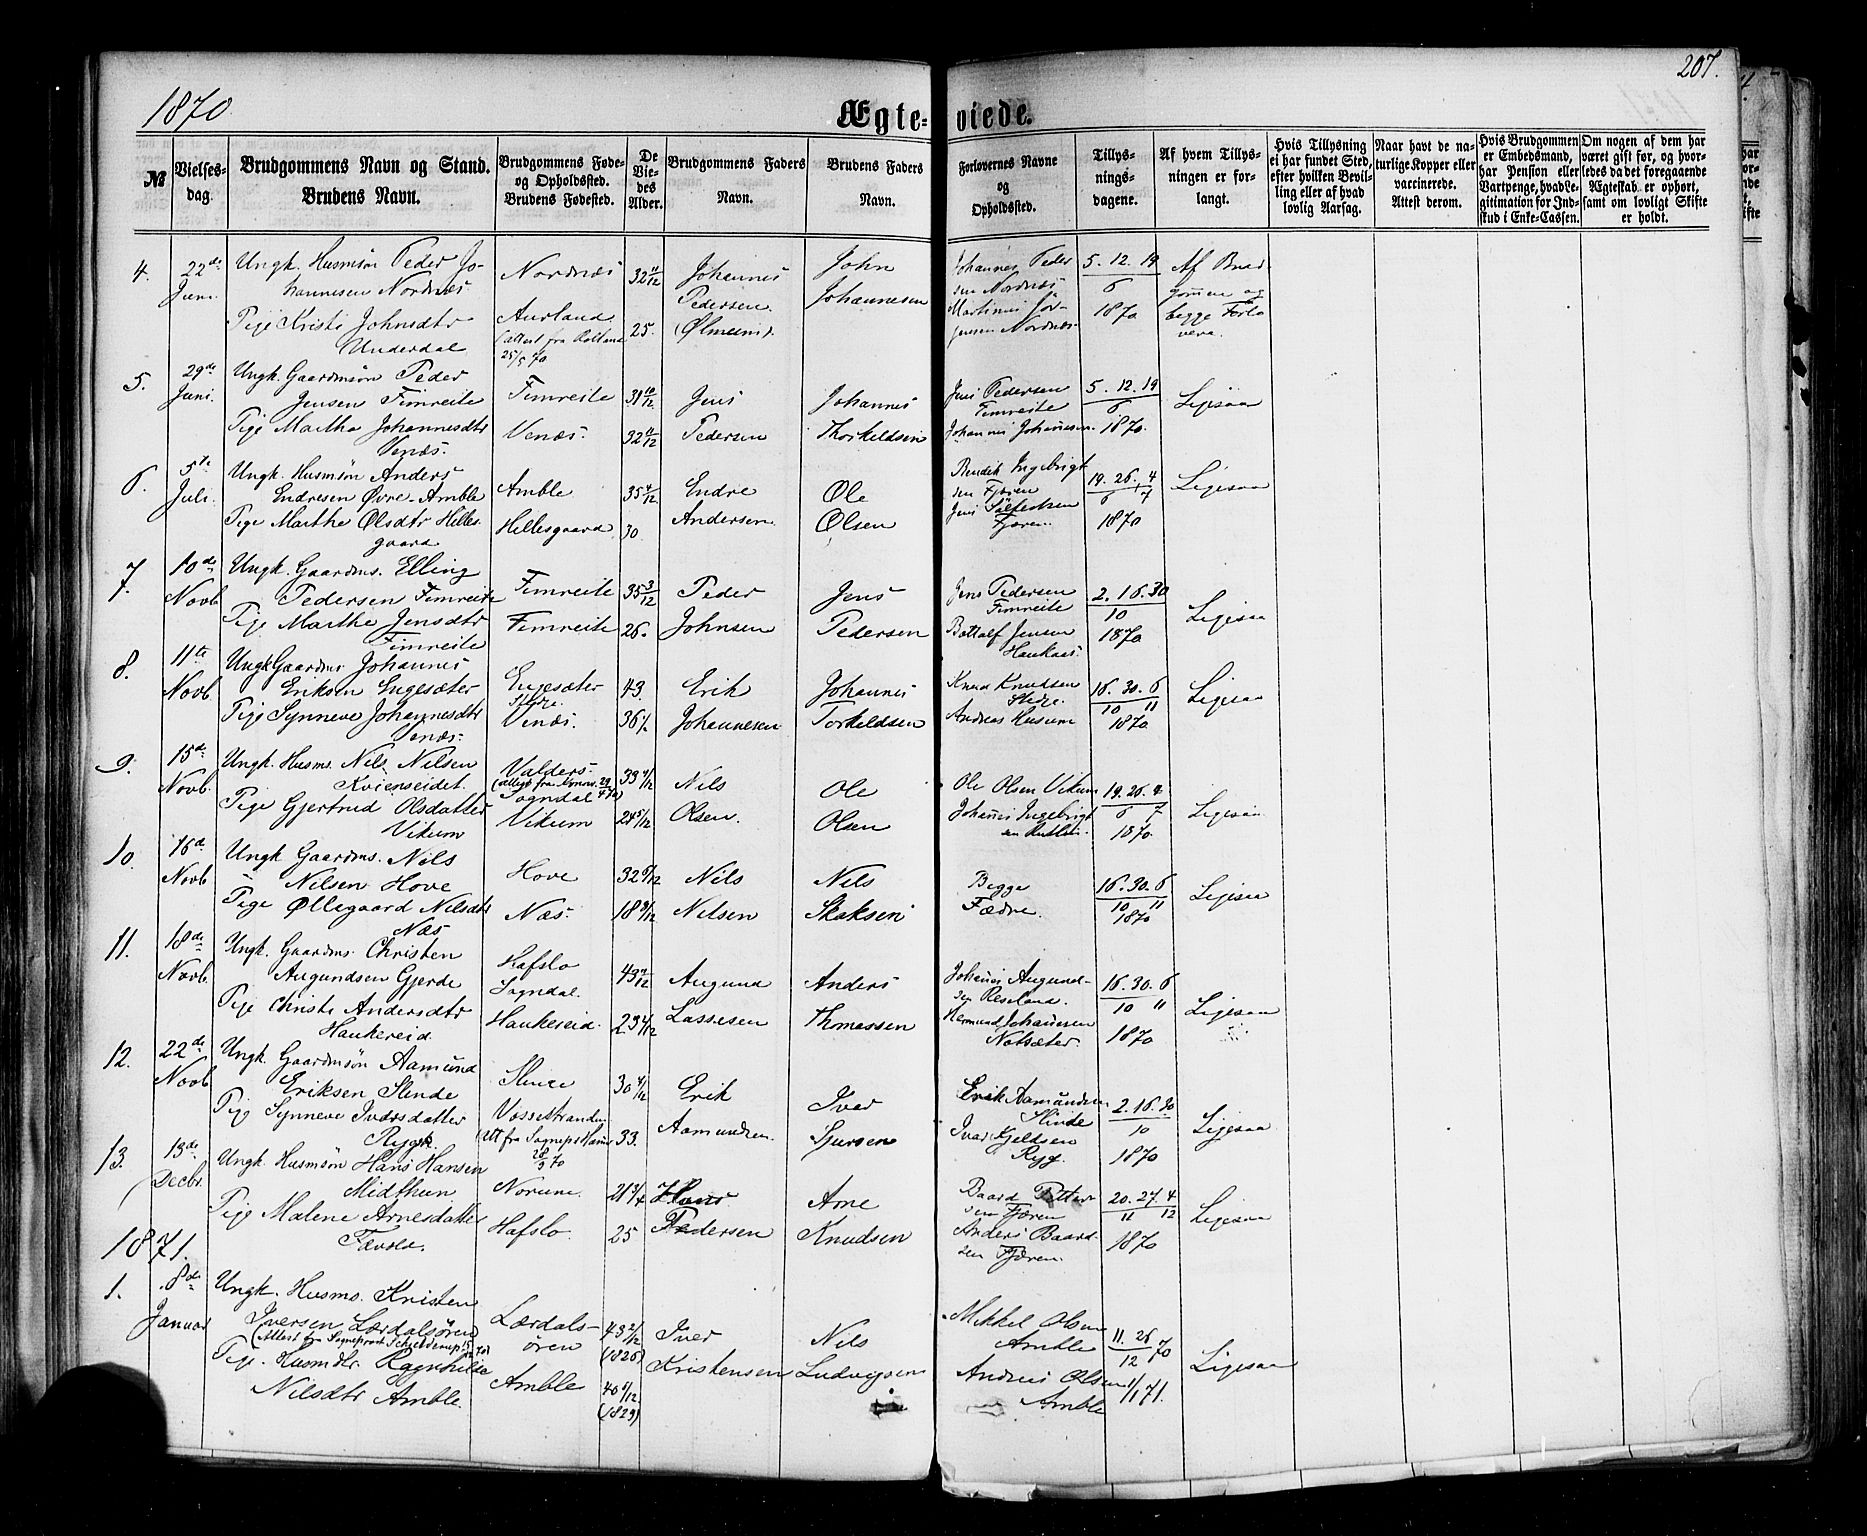 1870
207.
Ægteviede.
№
Vielsesdag.
Brudgommens Navn og Stand.
Brudens Navn.
Brudgommens Føde-
og Opholdssted.
Brudens Fødested.
De
Vie-
des
Alder.
Brudgommens Faders
Navn.
Brudens Faders
Navn.
Forlovernes Navne
og
Opholdssted.
Tillys-
nings-
dagene.
Af hvem Tillys-
ningen er for-
langt.
Hvis Tillysning
ei har fundet Sted,
efter hvilken Bevil-
ling eller af hvad
lovlig Aarsag.
Naar havt de na-
turlige Kopper eller
vaccinerede.
Attest derom.
Hvis Brudgommen
er Embedsmand,
har Pension eller
Vartpenge, hvad Le-
gitimation for Ind-
skud i Enke-Cassen.
Om nogen af dem har
været gift før, og hvor-
ledes da det foregaaende
Ægteskab er ophørt,
samt om lovligt Skifte
er holdt.
4. 22de Juni.
Ungk. Husmsøn Peder Jo-
hannesen Nordnæs.
Pige Kristi Johnsdtr
Underdal
Nordnæs
Aurland
25/5 70
32 11/12
25.
Johannes
Pedersen
John
Johannesen
Johannes Peder
sen Nordnæs
Martinus Jør-
gensen Nordnæs
5. 12. 19
6
1870
Af Brud-
gommen og
begge Forlo
vere.
5. 29de Juni.
Ungk. Gaardmsøn Peder
Jensen Fimreite
Pige Martha Johannesdtr
Venæs.
Fimreite
Venæs.
31 10/12
32 11/12
Jens
Pedersen
Johannes
Thorkeldsen
Jens Pedersen
Fimreite
Johannes Johannesen
5. 12. 19
6
1870.
Ligesaa
6. 5te Juli.
Ungk. Husmsøn Anders
Endresen Øvre-Amble
Pige Marthe Olsdtr Helles-
gaard
Amble
Hellesgaard
35 4/12
30
Endre
Andersen
Ole
Olsen
Bendik Ingebrigt
sen Fjæren
Jens
Fjæren.
19. 26. 4
6 7
1870
Ligesaa
7. 10de Novb
Ungk. Gaardms. Elling
Pedersen Fimreite
Pige Marthe Jensdtr
Fimreite
Fimreite
Fimreite
35 3/12
26.
Peder
Johnsen
Jens
Pedersen
Jens Pedersen
Fimreite
Bottolf Jensen
Haukaas.
2. 16. 30
10
1870
Ligesaa
8. 11te Novb.
Ungk Gaardms Johannes
Eriksen Engesæter
Pige Synneve Johannesdtr
Venæs.
Engesæter
Venæs.
43.
36
Erik
Johannesen
Johannes
Torkeldsen
Knud Knudsen
Stedje.
Andreas Husum
16. 30. 6
10 11
1870
Ligesaa
9. 15de Novb.
Ungk. Husms. Nils Nilsen
Kvienseidet.
Pige Gjertrud Olsdatter
Vikum
Valders.
Sogndal
Vikum
33
24 5/12
Nils
Olsen.
Ole
Olsen
Ole Olsen Vikum
Johannes Ingebrigt
sen
19. 26. 4
6 7
1870.
Ligesaa
10. 16de Novb
Ungk Gaardms. Nils
Nilsen Hove
Pige Øllegaard Nilsdtr
Næs
Hove
Næs.
32
18 9/12
Nils
Nilsen
Nils
Skaksen
Begge
Fædre.
16. 30. 6
10 11
1870
Ligesaa
11. 18de Novb.
Ungk. Gaardms. Christen
Augundsen Gjerde
Pige Christi Andersdtr
Haukereid
Hafslo
Sogndal.
Haukereid.
43 9/12
23 4/12
Augund
Lassesen
Anders
Thomassen
Johannes Augund-
sen Reseland.
Hermund Johannesen
Notsæter.
16. 30. 6
10 11
1870
Ligesaa
12. 22de Novb
Ungk. Gaardmsøn Aamund
Eriksen Slinde
Pige Synneve Iversdatter
Rygg.
Slinde
Vossestranden
30 4/12
33.
Erik
Aamundsen
Iver
Sjursen
Erik Aamundsen
Slinde
Ivar Kjeldsen
Rygg.
2. 16. 30
10
1870
Ligesaa
13. 13de Decbr.
Ungk. Husmsøn Hans Hansen
Midthun.
Pige Malene Arnesdatter
Norum.
Hafslo
21 3/4
25
Hans
Pedersen
Arne
Knudsen
Baard Petter-
sen Fjæren
Anders Baard-
sen Fjæren.
20. 27. 4
11 12
1870
Ligesaa
1871.
1. 8de Januar
Ungk. Husms. Kristen
Iversen Lærdalsøren
Pige. Husmdtr. Ragnhilde
Nilsdtr Amble.
Lærdals-
øren
Amble
43 2/12
(1826)
40
(1829)
Iver
Kristensen
Nils
Ludvigsen
Mikkel Olsen
Amble
Andreas Olsen
Amble
11. 26
12 70
1/1 71.
Ligesaa